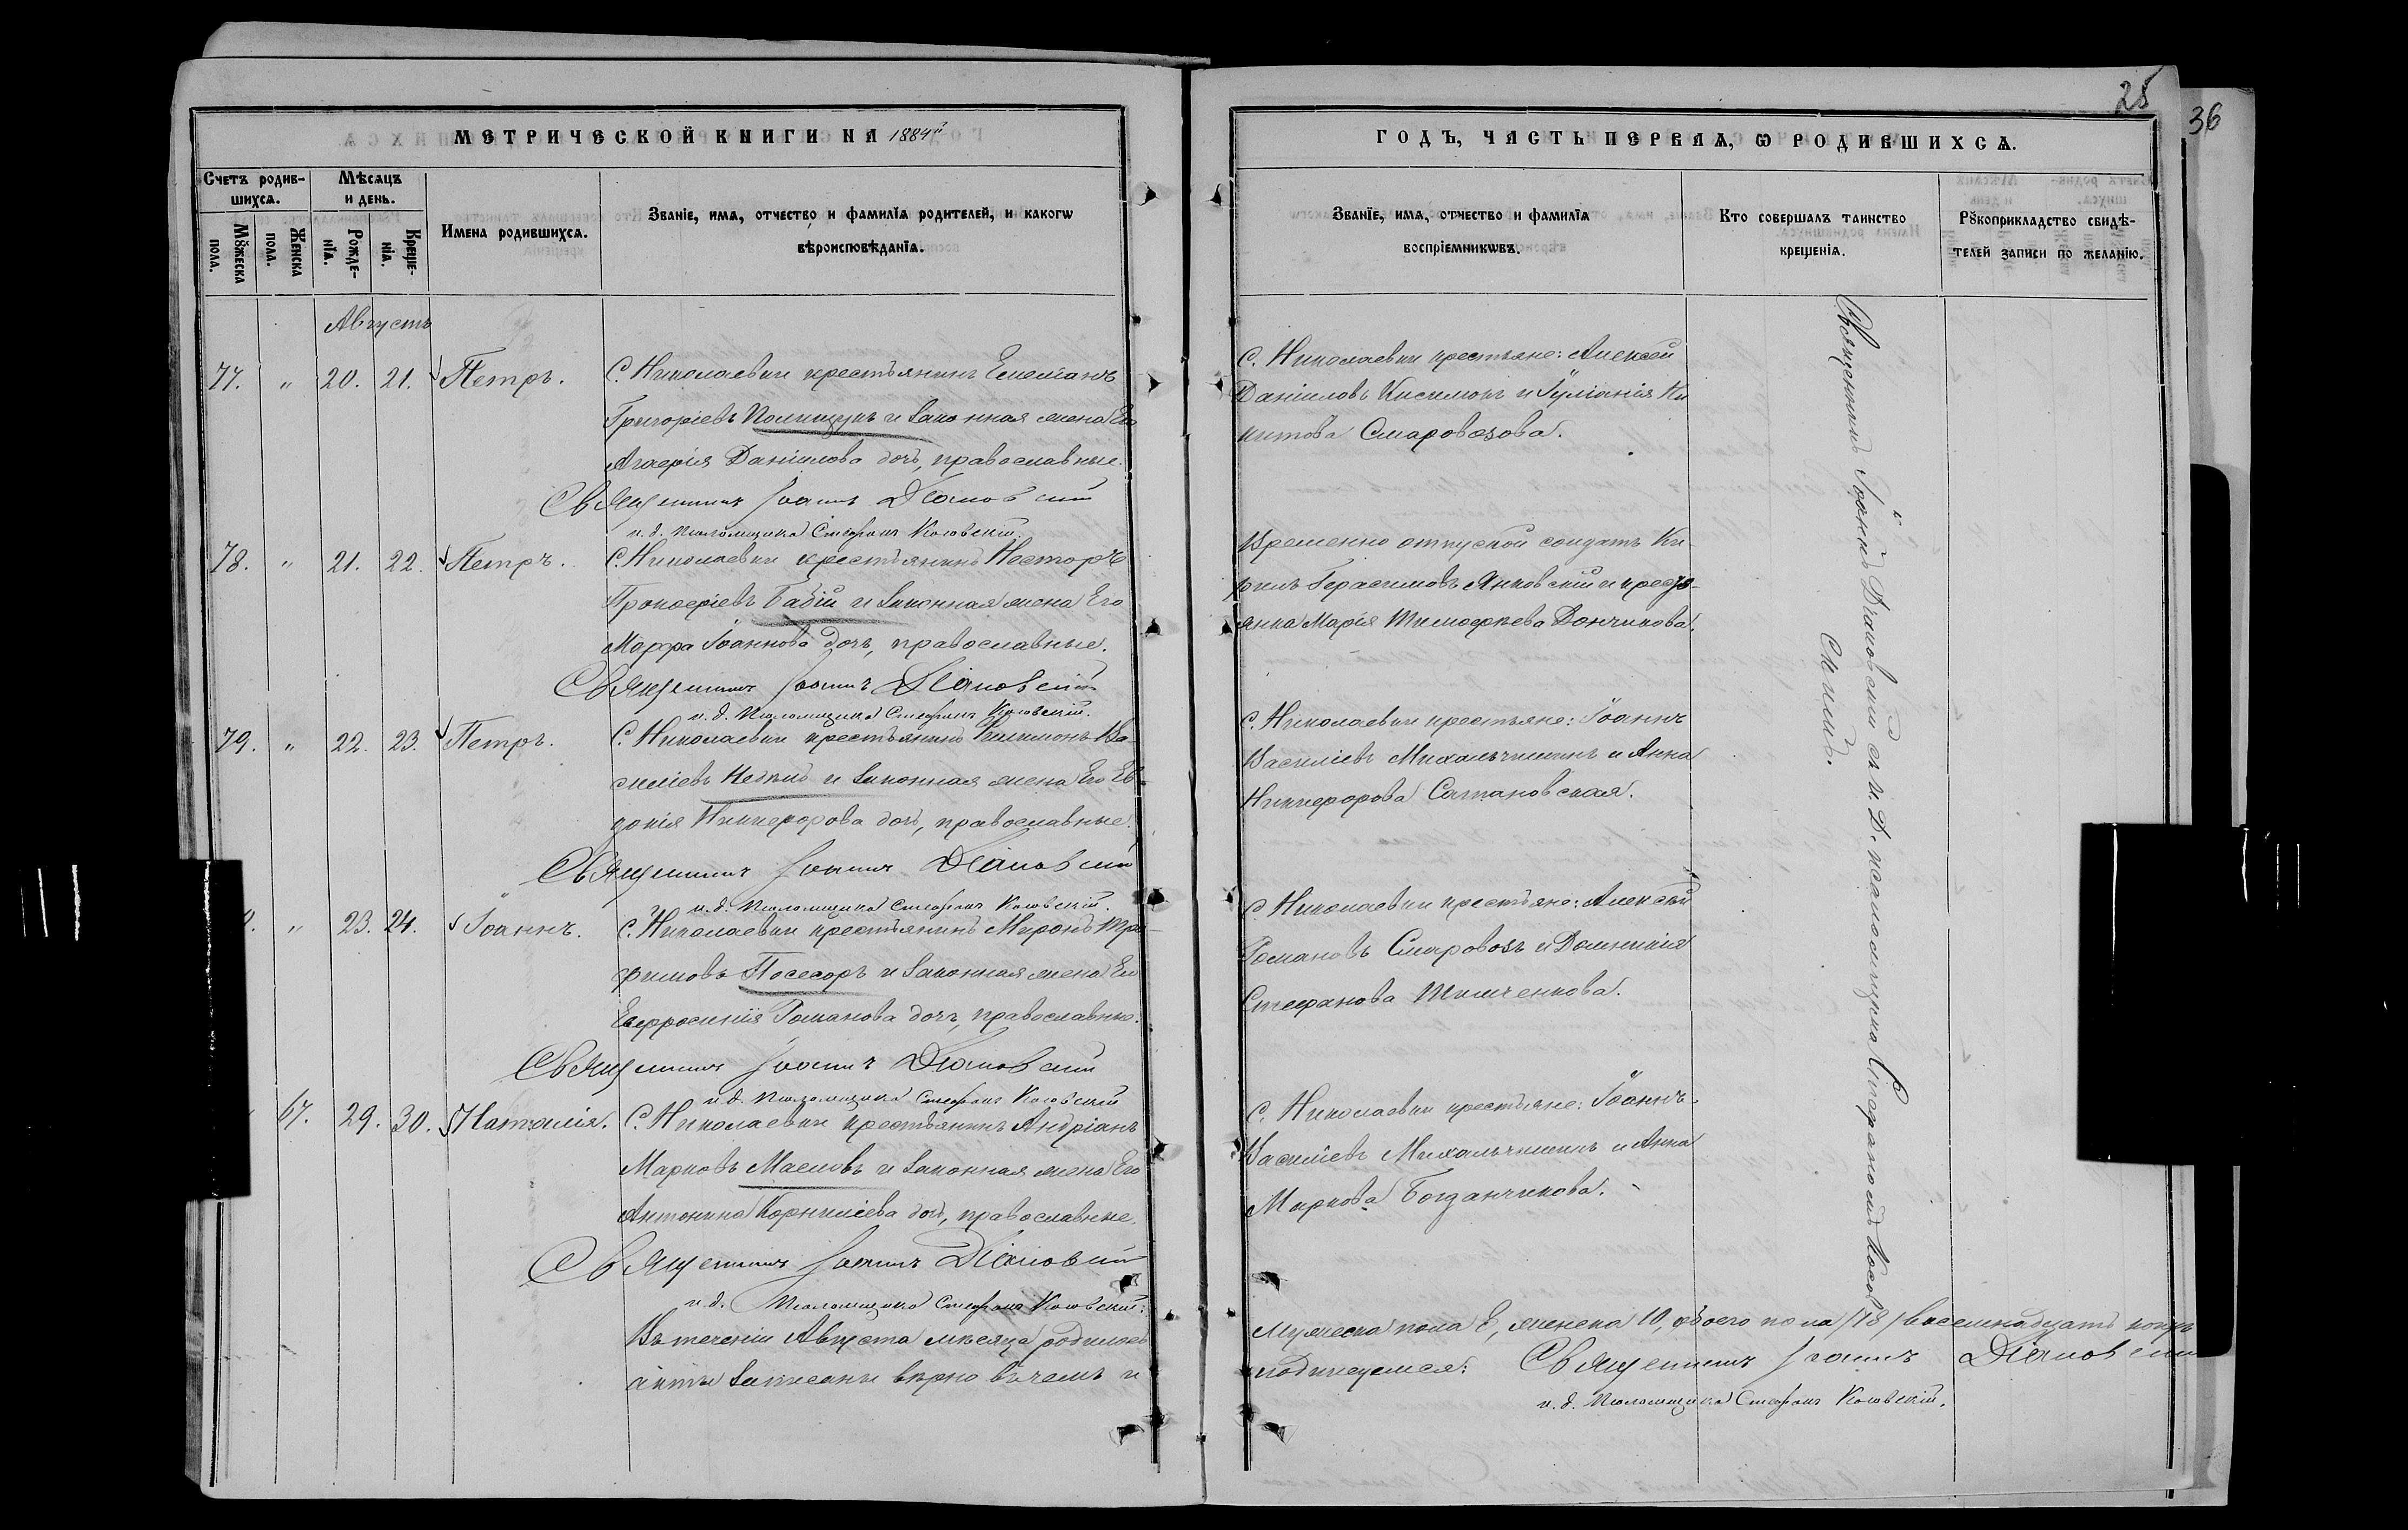 25
36
МЕТРИЧЕСКОЙ КНИГИ НА 1884й
ГОДЪ, ЧАСТЬ ПЕРВАѦ, Ѡ РОДИВШИХСѦ.
Счетъ родив-
шихсѧ.
Мѣсѧцъ
и день.
Мꙋжеска
пола.
Женска
пола.
Рожде-
нїѧ.
Креще-
нїѧ.
Имена родившихсѧ.
Званїе, имѧ, отчество и фамилїѧ родителей, и какогѡ
вѣроисповѣданїѧ.
Званїе, имѧ, отчество и фамилїѧ
воспрїемникѡвъ.
Кто совершалъ таинство
крещенїѧ.
Рꙋкоприкладство свидѣ-
телей записи по желанїю.
Августъ
77. " 20. 21. Петръ.
С. Николаевки крестьянинъ Емеліанъ
Григоріевъ Полищукъ и законная жена Его
Даніилова дочь, православные.
Священникъ Іоаннъ Діановскій
и. д. Псаломщика Стефанъ Косовскій.
С. Николаевки крестьяне: Алексѣй
Даніиловъ и Іуліанія Ни
китова Старовозова.
78. " 21. 22. Петръ.
С. Николаевки крестьянинъ Несторъ
Прокофіевъ Бабій и законная жена Его
Марфа Іоаннова дочь, православные.
Священникъ Іоаннъ Діановскій
и. д. Псаломщика Стефанъ Косовскій.
Временно отпускной солдатъ Ки-
рилъ Герасимовъ Янковскій и кресть-
янка Марія Тимофѣева Дончикова.
79. " 22. 23. Петръ.
С. Николаевки крестьянинъ Филимонъ Ва-
силіевъ и законная жена Его Ев-
докія Никифорова дочь, православные.
Священникъ Іоаннъ Діановскій
и. д. Псаломщика Стефанъ Косовскій.
С. Николаевки крестьяне: Іоаннъ
Василіевъ Михальчишинъ и Анна
Никифорова Сатановская.
" 23. 24. Іоаннъ.
С. Николаевки крестьянинъ Миронъ Тро-
фимовъ Посесоръ и законная жена Его
Евфросинія Романова дочь, православные.
Священникъ Іоаннъ Діановскій
и. д. Псаломщика Стефанъ Косовскій
С. Николаевки крестьяне: Алексѣй
Романовъ Старовозъ и Домникія
Стефанова Тимченкова.
67. 29. 30. Наталія.
С. Николаевки крестьянинъ Андріанъ
Марковъ Масловъ и законная жена Его
Антонина Корниліева дочь, православные.
Священникъ Іоаннъ Діановскій
и. д. Псаломщика Стефанъ Косовскій.
С. Николаевки крестьяне: Іоаннъ
Василіевъ Михальчишинъ и Анна
Маркова Богданчикова.
Священникъ Іоаннъ Діановскій съ и. д. псаломщика Стефаномъ Косов
скимъ.
Въ теченіи Августа мѣсяца родилось
мужеска пола 8, женска 10, обоего пола /18/ восемнадцать
акты записаны вѣрно въ чемъ и
подписуемся: Священникъ Іоаннъ Діановскій
и. д. Псаломщика Стефанъ Косовскій.